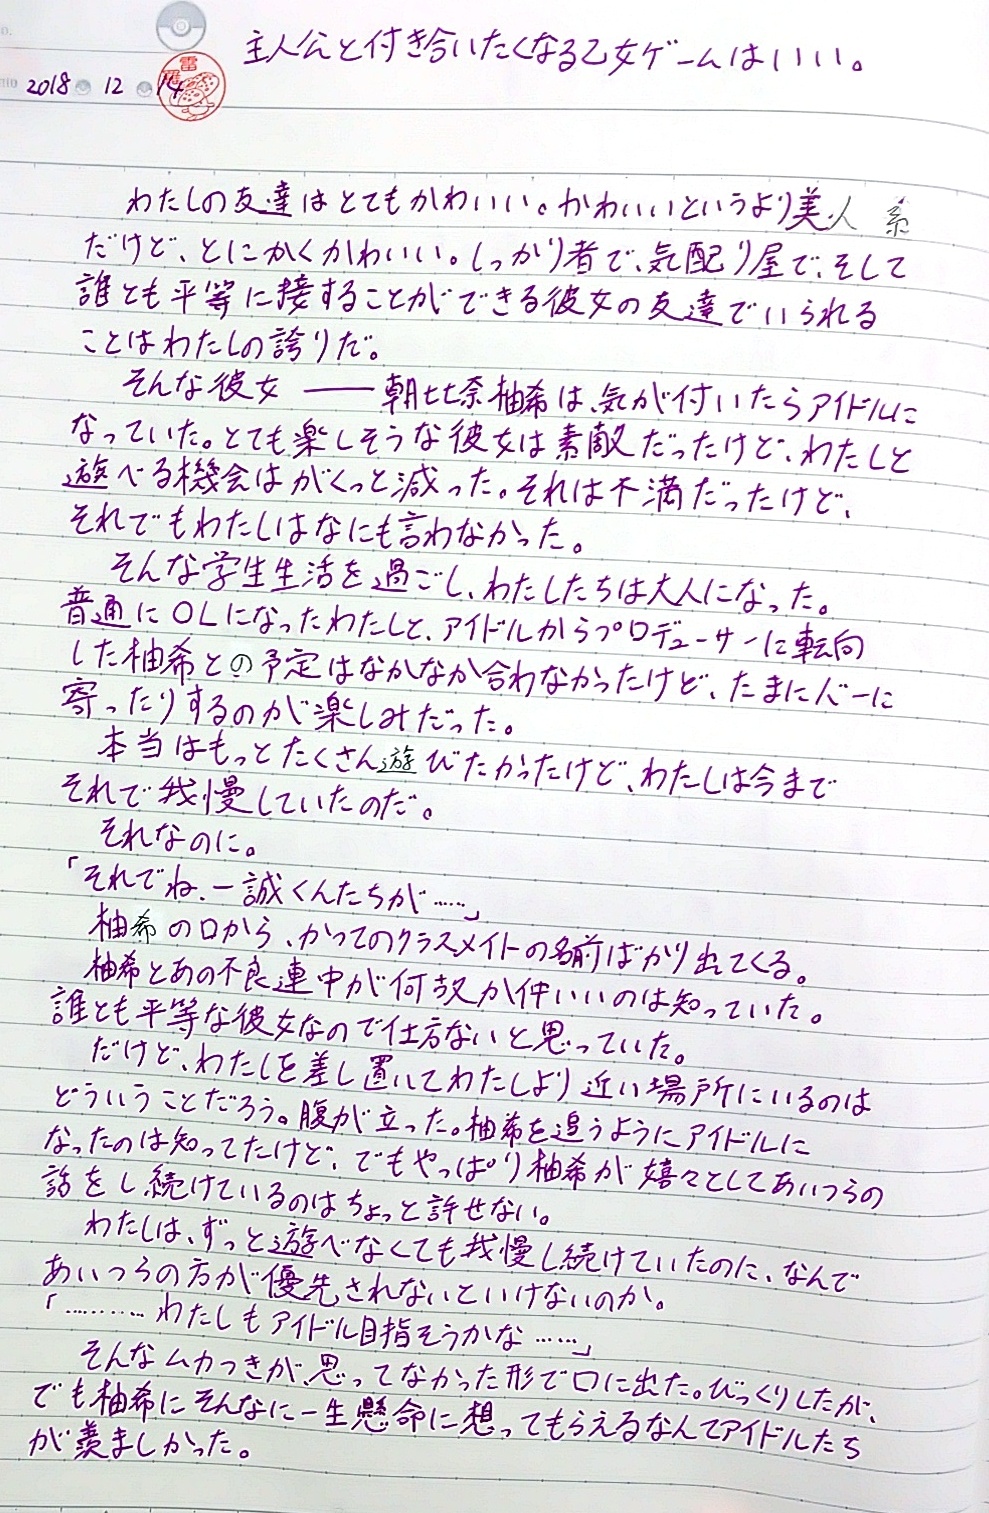 主人公と付き合いたくなる乙女ゲームはいい。
2018 12 14
雷
わたしの友達はとてもかわいい。かわいいというより美人系
だけど、とにかくかわいい。しっかり者で、気配り屋で、そして
誰とも平等に接することができる彼女の友達でいられる
ことはわたしの誇りだ。
そんな彼女――朝比奈柚希は、気が付いたらアイドルに
なっていた。とても楽しそうな彼女は素敵だったけど、わたしと
遊べる機会はがくっと減った。それは不満だったけど、
それでもわたしはなにも言わなかった。
そんな学生生活を過ごし、わたしたちは大人になった。
普通にOLになったわたしと、アイドルからプロデューサーに転向
した柚希との予定はなかなか合わなかったけど、たまにバーに
寄ったりするのが楽しみだった。
本当はもっとたくさん遊びたかったけど、わたしは今まで
それで我慢していたのだ。
それなのに。
「それでね、一誠くんたちが……」
柚希の口から、かつてのクラスメイトの名前ばかり出てくる。
柚希とあの不良連中が何故か仲いいのは知っていた。
誰とも平等な彼女なので仕方ないと思っていた。
だけど、わたしを差し置いてわたしより近い場所にいるのは
どういうことだろう。腹が立った。柚希を追うようにアイドルに
なったのは知ってたけど、でもやっぱり柚希が嬉々としてあいつらの
話をし続けているのはちょっと許せない。
わたしは、ずっと遊べなくても我慢し続けていたのに、なんで
あいつらの方が優先されないといけないのか。
「…………わたしもアイドル目指そうかな……」
そんなムカつきが、思ってなかった形で口に出た。びっくりしたが、
でも柚希にそんなに一生懸命に想ってもらえるなんてアイドルたち
が羨ましかった。